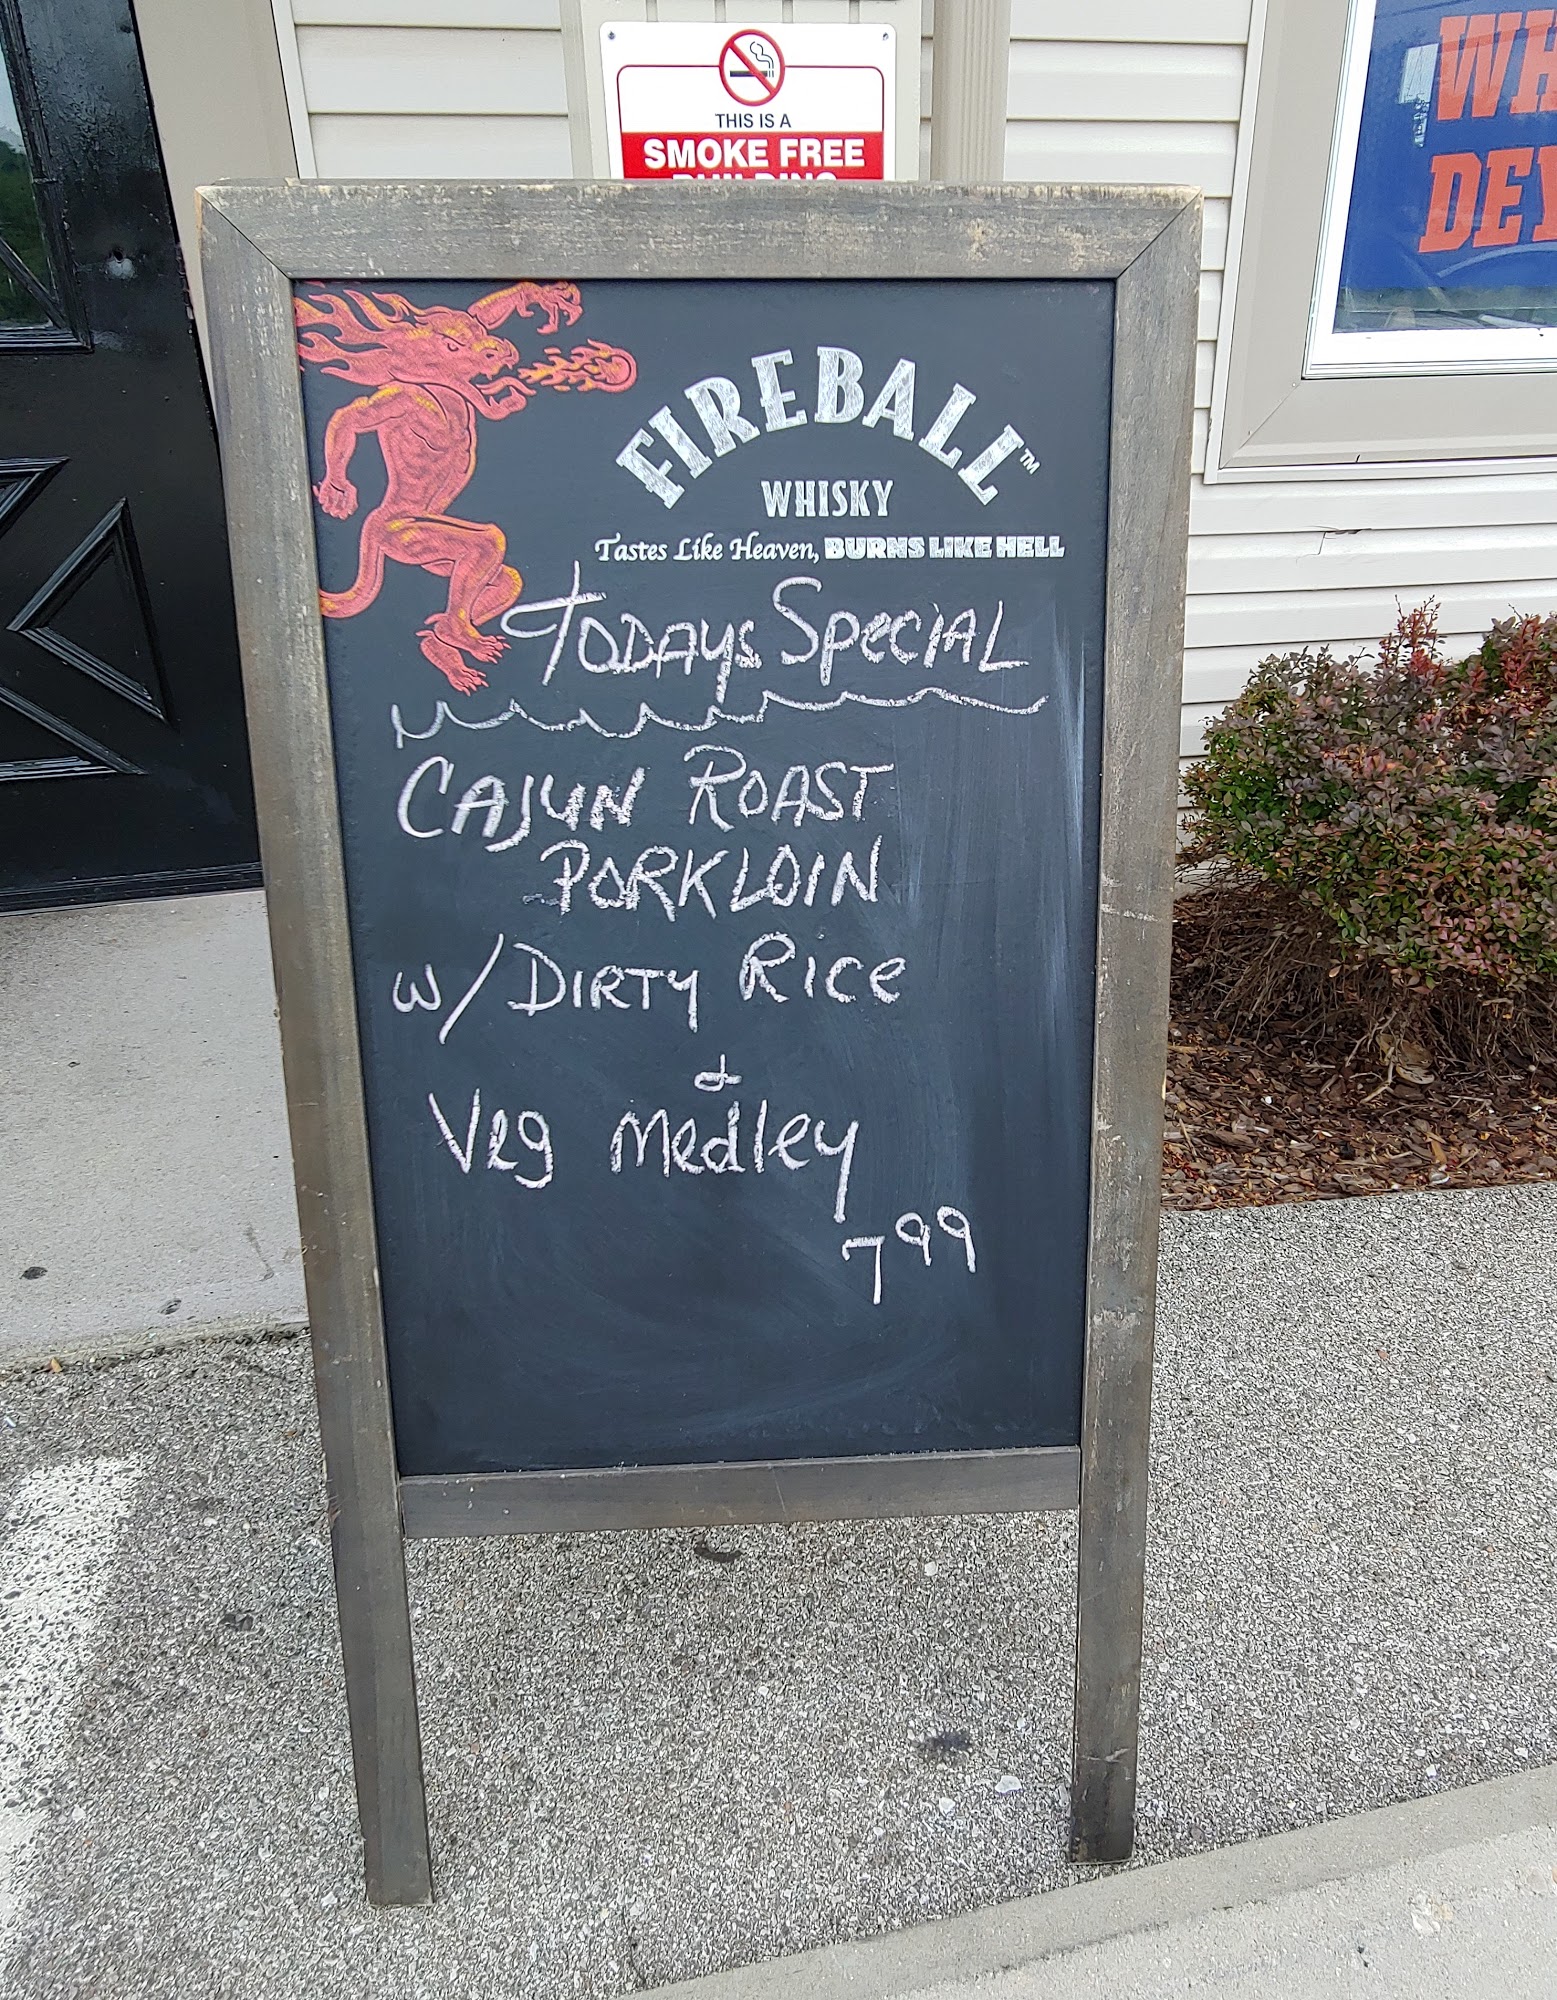 THIS IS A
SMOKE FREE
BUILDING
WH
DEY
FIREBALL™
WHISKY
Tastes Like Heaven, BURNS LIKE HELL
Todays Special
CAJUN ROAST
PORKLOIN
w/ DIRTY Rice
&
Veg Medley
7.99